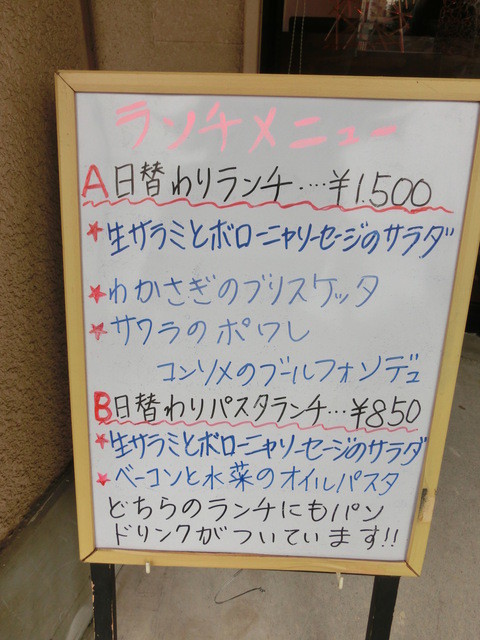 ランチメニュー
A 日替わりランチ‥‥¥1.500
★生サラミとボローニャソーセージのサラダ
★わかさぎのブリスケッタ
★サワラのポワレ
コンソメのブールフォンデュ
B 日替わりパスタランチ…¥850
★生サラミとボローニャソーセージのサラダ
★ベーコンと水菜のオイルパスタ
どちらのランチにもパン
ドリンクがついています!!